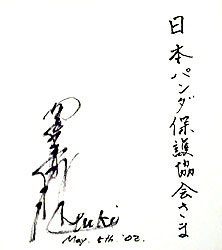 日本パンダ保護協会さま
Yuki
May. 5th '02.